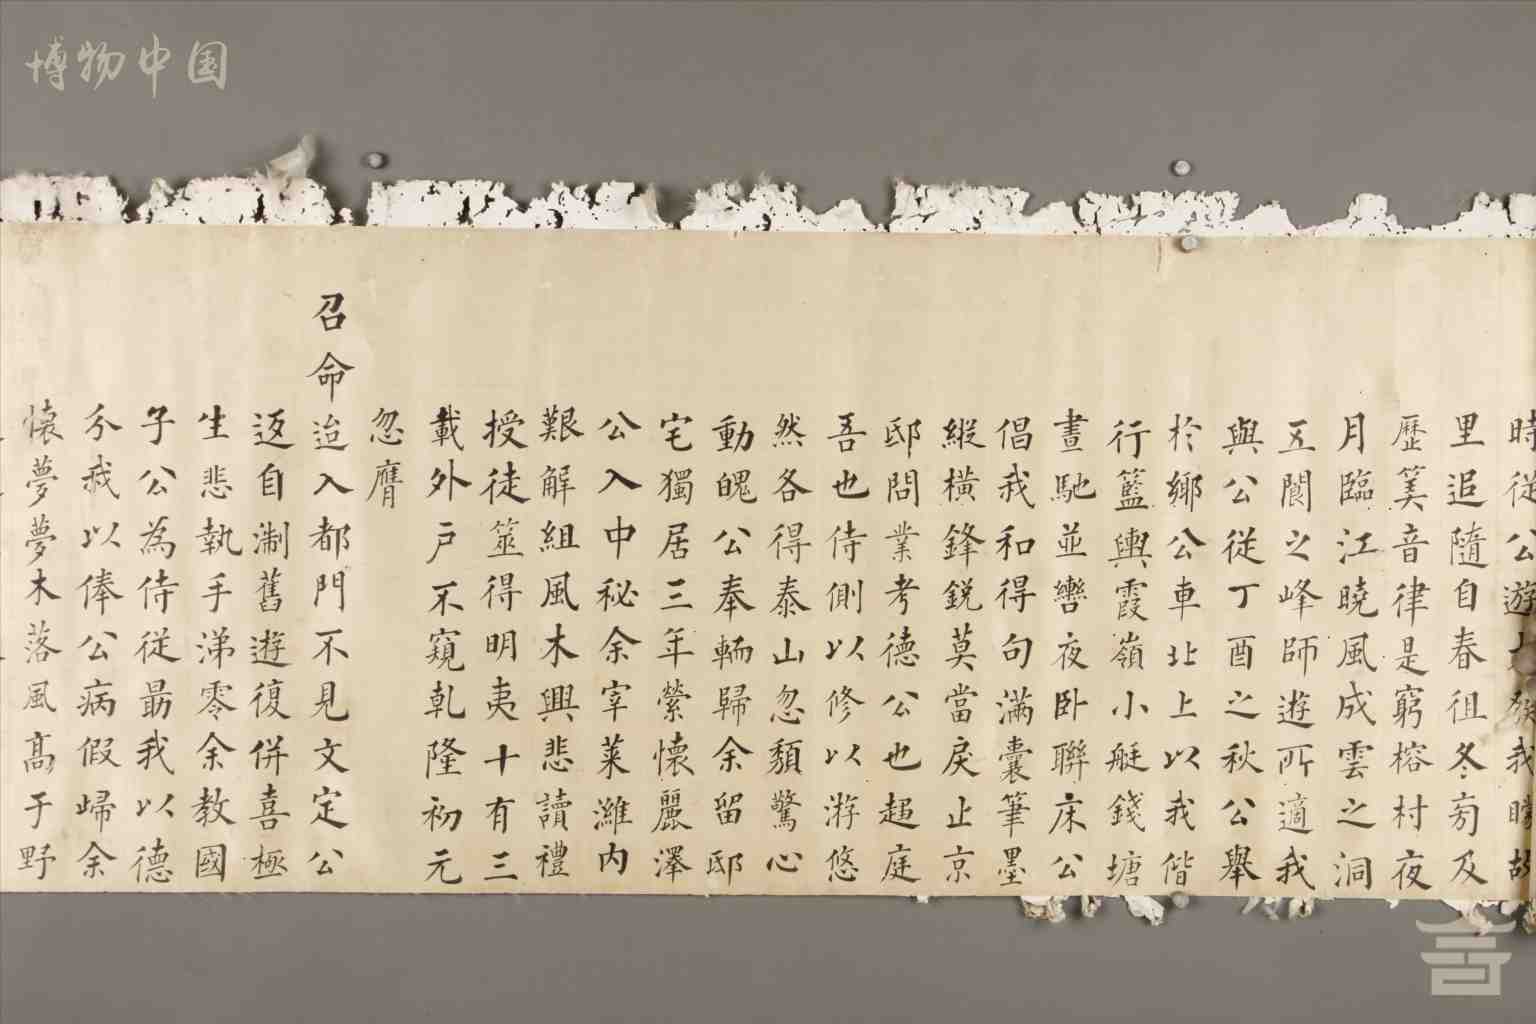 博物中国
時從公遊
里追隨自春徂冬雱及
歷筭音律是窮榕村夜
月臨江曉風成雲之洞
五閬之峰師遊所適我
與公從丁酉之秋公舉
於鄉公車北上以我偕
行籃輿霞嶺小艇錢塘
晝馳並轡夜卧聯床公
倡我和得句滿囊筆墨
縱橫鋒銳莫當戾止京
邸問業考德公也超庭
吾也侍側以修以游悠
然各得泰山忽頹驚心
動魄公奉輀歸余留邸
宅獨居三年縈懷麗澤
公入中秘余宰萊濰內
艱解組風木興悲讀禮
授徒筮得明夷十有三
載外戶不窺乹隆初元
忽膺
召命迨入都門不見文定公
返自淛舊遊復併喜極
生悲執手涕零余教國
子公為侍從勗我以德
分我以俸公病假歸余
懷夢夢木落風高于野